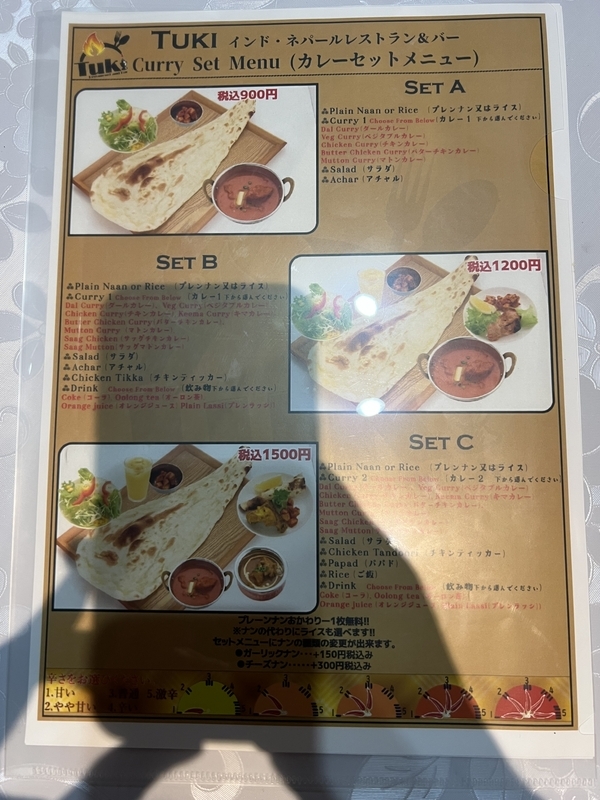 Tuki
TUKI インド・ネパールレストラン&バー
Curry Set Menu (カレーセットメニュー)
税込900円
SET A
Plain Naan or Rice (プレンナン又はライス)
Curry 1 Choose From Below (カレー1 下から選んでください)
Dal Curry (ダールカレー)
Veg Curry (ベジタブルカレー)
Chicken Curry (チキンカレー)
Butter Chicken Curry (バターチキンカレー)
Mutton Curry (マトンカレー)
Salad (サラダ)
Achar (アチャル)
SET B
Plain Naan or Rice (プレンナン又はライス)
Curry 1 Choose From Below (カレー1 下から選んでください)
Dal Curry (ダールカレー), Veg Curry (ベジタブルカレー)
Chicken Curry (チキンカレー), Keema Curry (キマカレー)
Butter Chicken Curry (バターチキンカレー),
Mutton Curry (マトンカレー)
Saag Chicken
Saag Mutton
Salad (サラダ)
Achar (アチャル)
Chicken Tikka (チキンティッカー)
Drink Choose From Below (飲み物下から選んでください)
Coke (コーラ), Oolong tea (ウーロン茶)
Orange juice (オレンジジュース) Plain Lassi (プレンラッシ)
税込1200円
税込1500円
SET C
Plain Naan or Rice (プレンナン又はライス)
Curry 2 Choose From Below (カレー2 下から選んでください)
Dal Veg Curry (ベジタブルカレー)
Chicken Keema Curry (キマカレー
Butter
Mutton
Saag Chicken
Saag Mutton
Salad (サラダ)
Chicken Tandoori (チキンティッカー)
Papad (パパド)
Rice (ご飯)
Drink Choose From Below (飲み物下から選んでください)
Coke (コーラ), Oolong tea (ウーロン茶)
Orange juice (オレンジジュース) Plain Lassi (プレンラッシ)
プレーンナンおかわり一1枚無料!!
※ナンの代わりにライスも選べます!!
セットメニューにナンの種類の変更が出来ます。
●ガーリックナン・・・+150円税込み
●チーズナン・・・・・+300円税込み
辛さをお選
1.甘い 3.普通 5.激辛
2.やや甘い 4.辛い
1 2 3 4 5
1 2 3 4 5
1 2 3 4 5
1 2 3 4 5
1 2 3 4 5